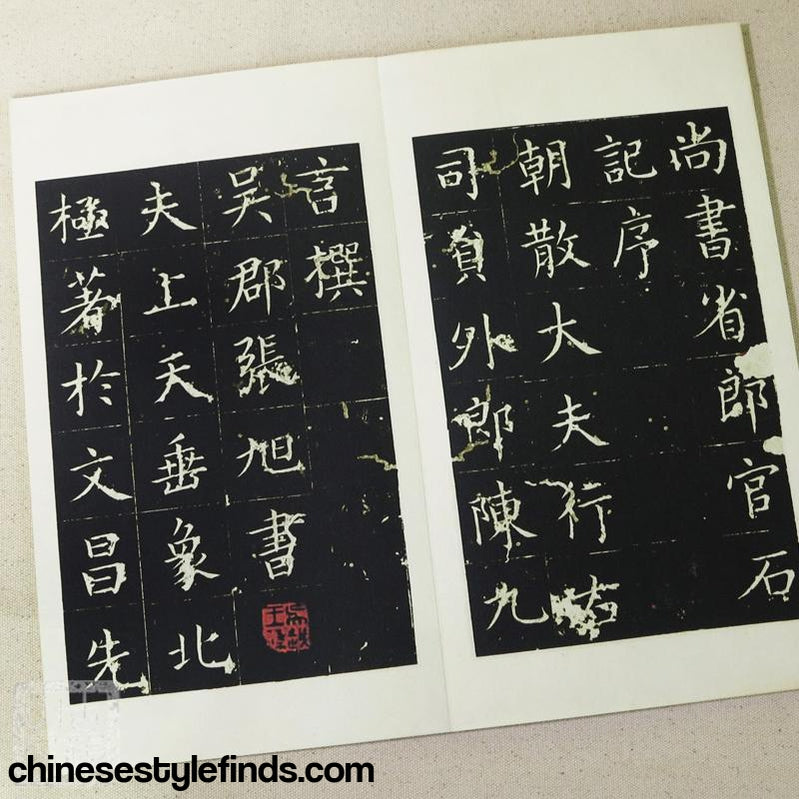 尚書省郎官石
記序
朝散大夫行右
司員外郎陳九
言撰
吳郡張旭書
夫上天垂象北
極著於文昌先
chinesestylefinds.com